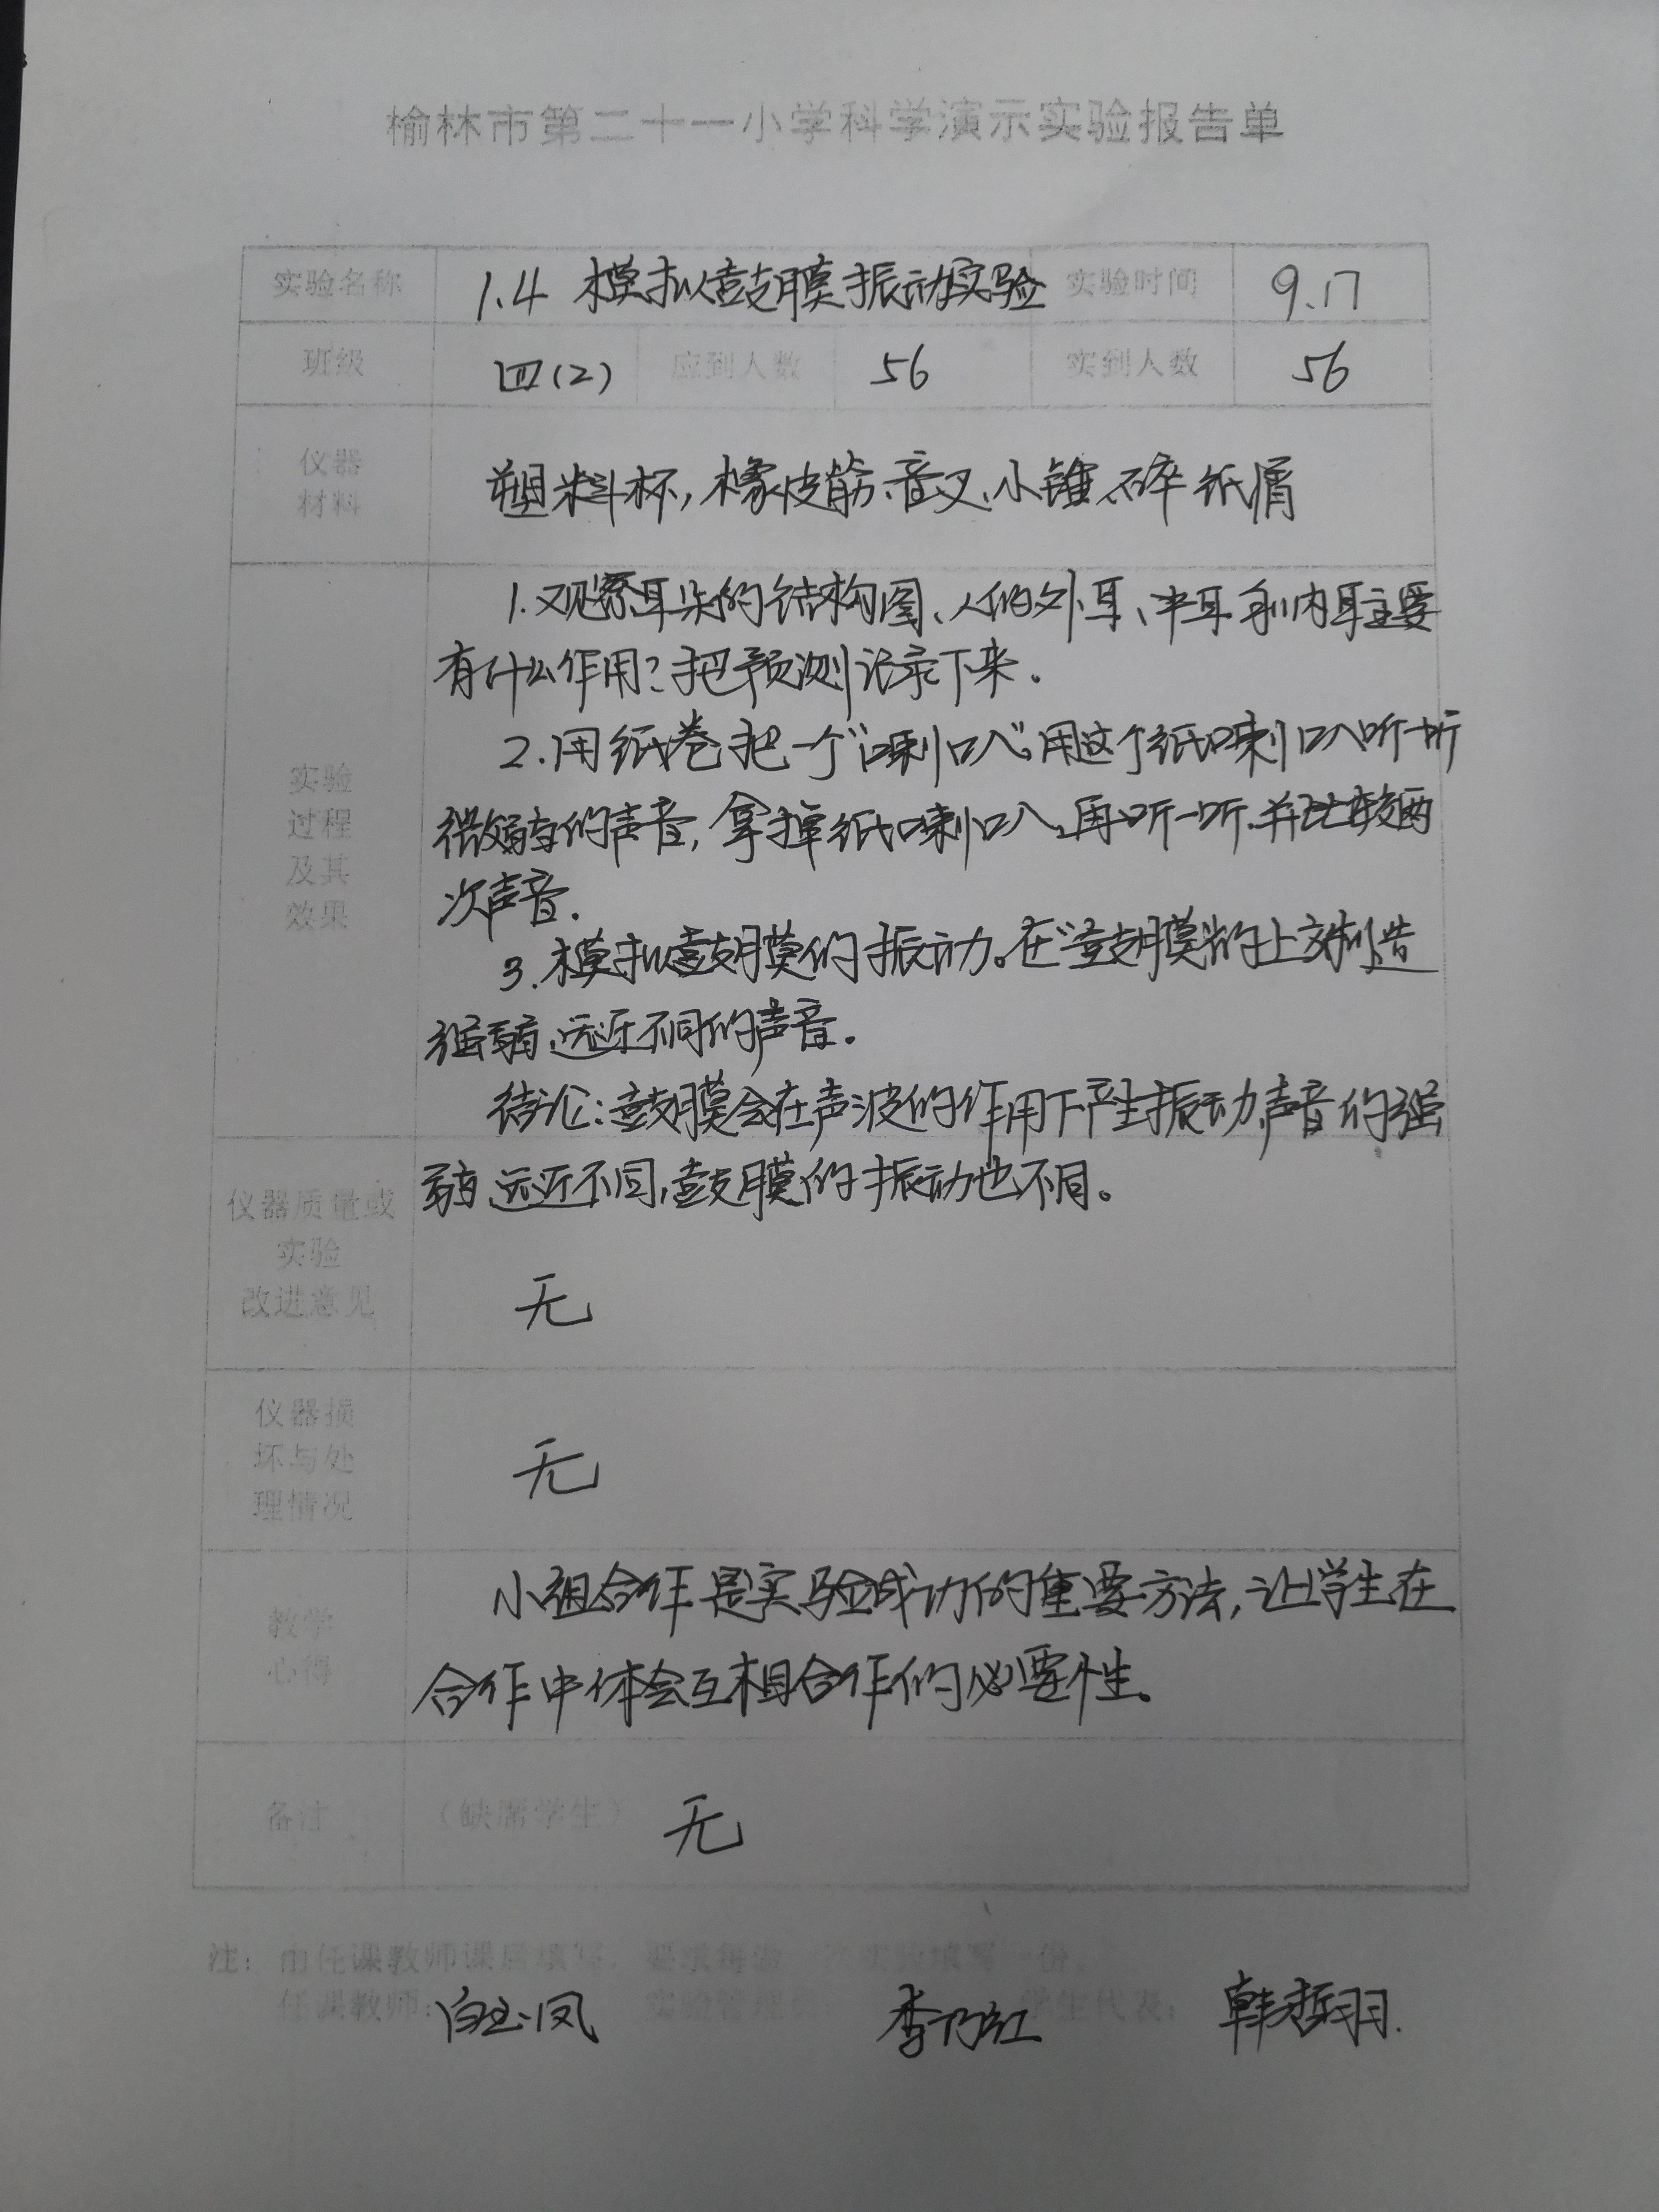 榆林市第二十一小学科学演示实验报告单
实验名称 1.4 模拟鼓膜振动实验 实验时间 9.17
班级 四(2) 应到人数 56 实到人数 56
仪器
材料
塑料杯,橡皮筋、音叉、小锤、碎纸屑
实验
过程
及其
效果
1.观察耳朵的结构图、人的外耳、中耳和内耳主要
有什么作用?把预测记录下来。
2.用纸卷把一个“喇叭”。用这个纸喇叭听一听
微弱的声音,拿掉纸喇叭,再听一听.并比较两
次声音.
3.模拟鼓膜的振动。在“鼓膜”的上方制造
强弱、远近不同的声音。
结论:鼓膜会在声波的作用下产生振动,声音的强
弱、远近不同,鼓膜的振动也不同。
仪器质量或
实验
改进意见
无
仪器损
坏与处
理情况
无
教学
心得
小组合作是实验成功的重要方法,让学生在
合作中体会互相合作的必要性。
备注 (缺席学生) 无
注:由任课教师课后填写,要求每 实验填写一份。
任课教师: 白玉凤 实验管理员: 李乃红 学生代表: 韩哲羽.